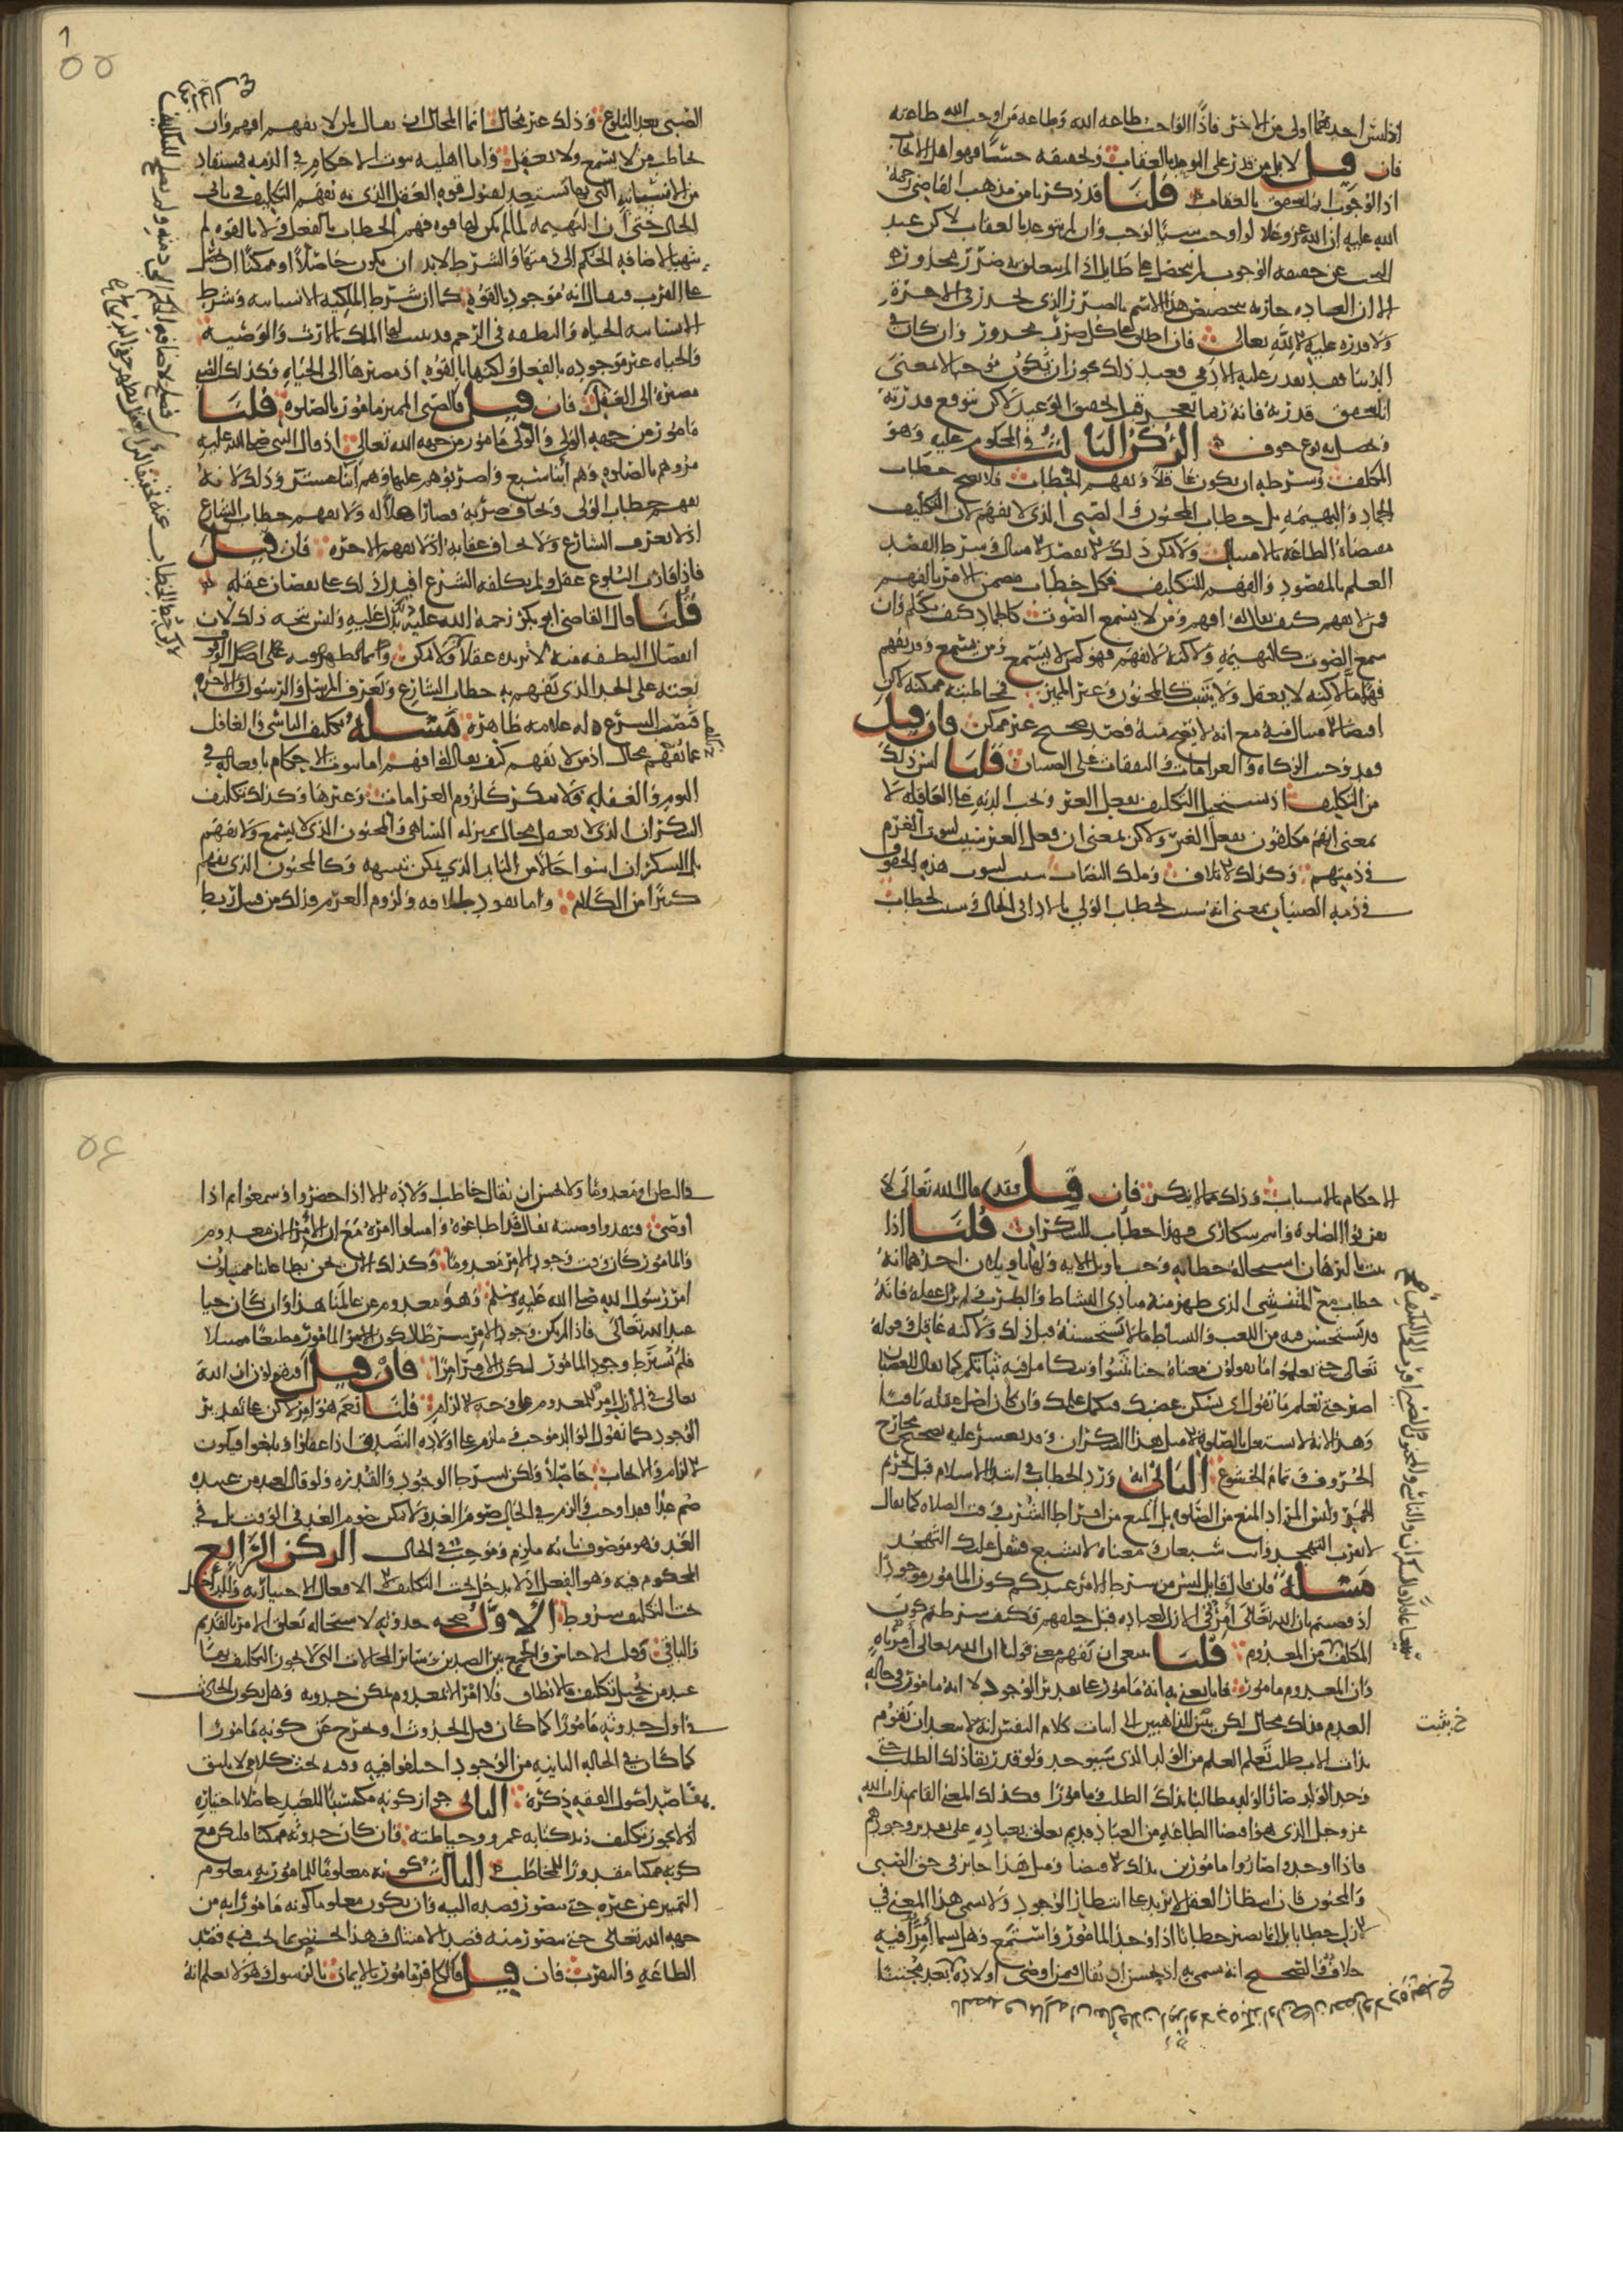 اذ ليس احدهما اولى من الاخر فاذا الواجب طاعه الله وطاعه من اوجب الله طاعته
فان قيل لا بل من قدر على التوعد بالعقاب وتحقيقه حسًا فهو اهل للايجاب
اذ الوجوب انما يتحقق بالعقاب قلنا قد ذكرنا من مذهب القاضي رحمة
الله عليه ان الله عز وعلا لو اوجب شيئًا لوجب وان لم يتوعد بالعقاب لاكن عند
البحث عن حقيقه الوجوب لم يتحصل على طايل اذا لم يتعلق به ضرر محذور
الا ان العاده جاريه بتخصيص هذا الاسم بالضرر الذي يحذر في الاخرة
ولا قدره عليه الا لله تعالى فان اطلق على كل ضرر محذور وان كان في
الدنيا فقد يقدر عليه الادمي فعند ذلك يجوز ان يكون موجبا لا بمعنى
انا نتحقق قدرته فانه ربما يعجز قبل تحقيق الوعيد لاكن نتوقع قدرته
ويحصل به نوع خوف الركن الثالث في المحكوم عليه وهو
المكلف وشرطه ان يكون عاقلًا يفهم الخطاب فلا يصح خطاب
الجماد والبهيمه بل خطاب المجنون والصبي الذي لا يفهم لان التكليف
مقتضاه الطاعه والامتثال ولا يمكن ذلك الا بقصد الامتثال وشرط القصد
العلم بالمقصود والفهم للتكليف فكل خطاب متضمن للامر بالفهم
فمن لا يفهم كيف يقال له افهم ومن لا يسمع الصوت كالجماد كيف يكلم وان
سمع الصوت كالبهيمه ولاكنه لا يفهم فهو كمن لا يسمع ومن يسمع وقد يفهم
فهمًا ما لاكنه لا يعقل ولا يثبت كالمجنون وغير المميز فمخاطبته ممكنه لاكن
اقتضا الامتثال منه مع انه لا يصح منه قصد صحيح غير ممكن فان قيل
فقد وجبت الزكاه والغرامات والنفقات على الصبيان قلنا ليس ذلك
من التكليف اذ يستحيل التكليف بفعل الغير وتجب الديه على العاقله لا
بمعنى انهم مكلفون بفعل الغير ولاكن بمعنى ان فعل الغير سبب لثبوت الغرم
في ذمتهم وكذلك الاتلاف وملك النصاب سبب لثبوت هذه الحقوق
في ذمه الصبيان بمعنى انه سبب لخطاب الولي بالادا في الحال وسبب لخطاب
٥٥
الصبي بعد البلوغ وذلك غير محال انما المحال ان يقال لمن لا يفهم افهم وان
يخاطب من لا يسمع ولا يعقل واما اهليه ثبوت الاحكام في الذمه فمستفاد
من الانسانيه التي بها يستعد لقبول قوه العقل الذي به يفهم التكليف في ثاني
الحال حتى ان البهيمه لما لم يكن لها قوه فهم الخطاب بالفعل ولا بالقوه لم
يتهيا لاضافه الحكم الى ذمتها والشرط لا بد ان يكون حاصلًا او ممكنًا ان يحصل
على القرب فيقال انه موجود بالقوه كما ان شرط الملكيه الانسانيه وشرط
الانسانيه الحياه والنطفه في الرحم قد يثبت لها الملك بالارث والوصيه
والحياه غير موجوده بالفعل ولكنها بالقوه اذ مصيرها الى الحياه فكذلك الصبي
مصيره الى العقل فان قيل فالصبي المميز مامور بالصلوه قلنا
مامور من جهه الولي والولي مامور من جهه الله تعالى اذ قال النبي صلى الله عليه
مروهم بالصلوه وهم ابنا سبع واضربوهم عليها وهم ابنا عشر وذلك لانه
يفهم خطاب الولي ويخاف ضربه فصار اهلًا له ولا يفهم خطاب الشارع
اذ لا يعرف الشارع ولا يخاف عقابه اذ لا يفهم الاخره فان قيل
فاذا قارب البلوغ عقل ولم يكلفه الشرع افيدل ذلك على نقصان عقله
قلنا قال القاضي ابو بكر رحمة الله عليه يدل عليه وليس يتجه ذلك لان
انفصال النطفه منه لا تزيده عقلًا
بغته على الحد الذي يفهم به خطاب الشارع ويعرف المرسل والرسول والاخره
فنصب الشرع له علامه ظاهرة مسله تكليف الناسي والغافل
عما يفهم محال اذ من لا يفهم كيف يقال له افهم اما ثبوت الاحكام بافعاله في
النوم والغفله فلا ينكر كلزوم الغرامات وغيرها وكذلك تكليف
السكران الذي لا يعقل محال بمنزله الساهي والمجنون الذي لا يسمع ولا يفهم
بل السكران اسوا حالًا من النايم الذي يمكن تنبيهه وكالمجنون الذي يفهم
كثيرًا من الكلام واما نفوذ طلاقه ولزوم الغرم فذلك من قبيل ربط
الاحكام بالاسباب وذلك مما لا ينكر فان قيل فقد قال الله تعالى لا
تقربوا الصلوه وانتم سكارى وهذا خطاب للسكران قلنا اذا
ثبت بالبرهان استحاله خطابه وجب تاويل الايه ولها تاويلان احدهما انه
خطاب مع المنتشي الذي ظهر منه مبادي النشاط والطرب ولم يزل عقله فانه
قد يستحسن منه من اللعب والنشاط ما لا يستحسنه قبل ذلك ولاكنه عاقل وقوله
تعالى حتى تعلموا ما تقولون معناه حتى تثبتوا ويتكامل فيه ثباتكم كما يقال للغضبان
اصبر حتى تعلم ما تقول اي يسكن غضبك فيكمل علمك وان كان اصل عقله باقيًا
وهذا لانه لا يشتغل بالصلوه مثل هذا السكران وقد يعسر عليه تصحيح مخارج
الحروف وتمام الخشوع الثاني انه ورد الخطاب في ابتدا الاسلام قبل تحريم
الخمر وليس المراد المنع من الصلوه بل المنع من افراط الشرب في وقت الصلاه كما يقال
لا تقرب التهجد وانت شبعان ومعناه لا تشبع فيثقل عليك التهجد
مسله فان قال قايل ليس من شرط الامر عندكم كون المامور موجودًا
اذ قضيتم بان الله تعالى امر في الازل لعباده قبل خلقهم فكيف شرطتم كون
المكلف من المعدوم قلنا ينبغي ان يفهم معنى قولنا ان الله تعالى امر ناه
وان المعدوم مامور فانا نعني به انه مامور على تقدير الوجود لا انه مامور في حاله
العدم فذلك محال لكن يثبت الذاهبين الى اثبات كلام النفس انه لا يبعد ان يقوم
خ يثبت
بذات الاب طلب تعلم العلم من الولد الذي سيوجد ولو قدر بقا ذلك الطلب حتى
وجد الولد صار الولد مطالبًا بذلك الطلب ومامورًا فكذلك المعنى القايم بذات الله
عز وجل الذي هو اقتضا الطاعه من العباد قديم تعلق بعباده على تقدير وجودهم
فاذا وجدوا صاروا مامورين بذلك الاقتضا ومثل هذا جاز في حق الصبي
والمجنون فان انتظار العقل لا يزيد على انتظار الوجود ولا يسمى هذا المعنى في
الازل خطابا بل انما يصير خطابا اذا وجد المامور واستمع وهل يسما امرًا فيه
خلاف والصحيح انه يسمى به اذ يحسن ان يقال فيمن اوصى اولاده
٥٤
ولا يحسن ان يقال خاطب اولاده الا اذا حضروا وسمعوا ثم اذا
اوصى فنفذوا وصيته يقال قد اطاعوه وامتثلوا امره مع ان الامر الان معدوم
والمامور كان وقت وجود الامر معدومًا وكذلك الان نحن بطاعاتنا ممتثلون
امر رسول الله صلى الله عليه وسلم وهو معدوم عن عالمنا هذا وان كان حيا
عند الله تعالى فاذا لم يكن وجود الامر شرطًا لكون المامور مطيعًا ممتثلا
فلم يشترط وجود المامور لكون الامر امرًا فان قيل افتقولون ان الله
تعالى في الازل امر للمعدوم على وجه الالزام قلنا نعم هو امر لاكن على تقدير
الوجود كما يقول الوالد موجب وملزم على اولاده التصدق اذا عقلوا وبلغوا فيكون
الالزام والايجاب حاصلًا ولكن بشرط الوجود والقدره ولو قال لعبده
صم غدا فقد اوجب والزم في الحال صوم الغد ولا يمكن صوم الغد في الوقت بل في
الغد وهو موصوف بانه ملزم وموجب في الحال الركن الرابع
المحكوم فيه وهو الفعل اذ لا يدخل تحت التكليف الا الافعال الاختياريه وللداخل
تحت التكليف شروط الاول صحه حدوثه لاستحاله تعلق الامر بالقديم
والباقي وقلب الاجناس والجمع بين الضدين وساير المحالات التي لا يجوز التكليف بها
عند من يحيل تكليف ما لا يطاق فلا امر الا بمعدوم يمكن حدوثه وهل يكون الحادث
في اول حدوثه مامورًا كما كان قبل الحدوث او يخرج عن كونه مامورا
كما كان في الحاله الثانيه من الوجود اختلفوا فيه وفيه بحث كلامي لا يليق
بمقاصد اصول الفقه ذكره الثاني جواز كونه مكتسبًا للعبد حاصلا باختياره
اذ لا يجوز تكليف زيد كتابه عمرو وخياطته فان كان حدوثه ممكنا فليكن مع
كونه ممكنا مقدورًا للمخاطب الثالث كونه معلومًا للمامور به معلوم
التمييز عن غيره حتى يتصور قصده اليه وان يكون معلوما كونه مامورًا به من
جهه الله تعالى حتى يتصور منه قصد الامتثال وهذا يختص بما يجب فيه قصد
الطاعه والتقرب فان قيل فالكافر مامور بالايمان بالرسول وهو لا يعلم انه